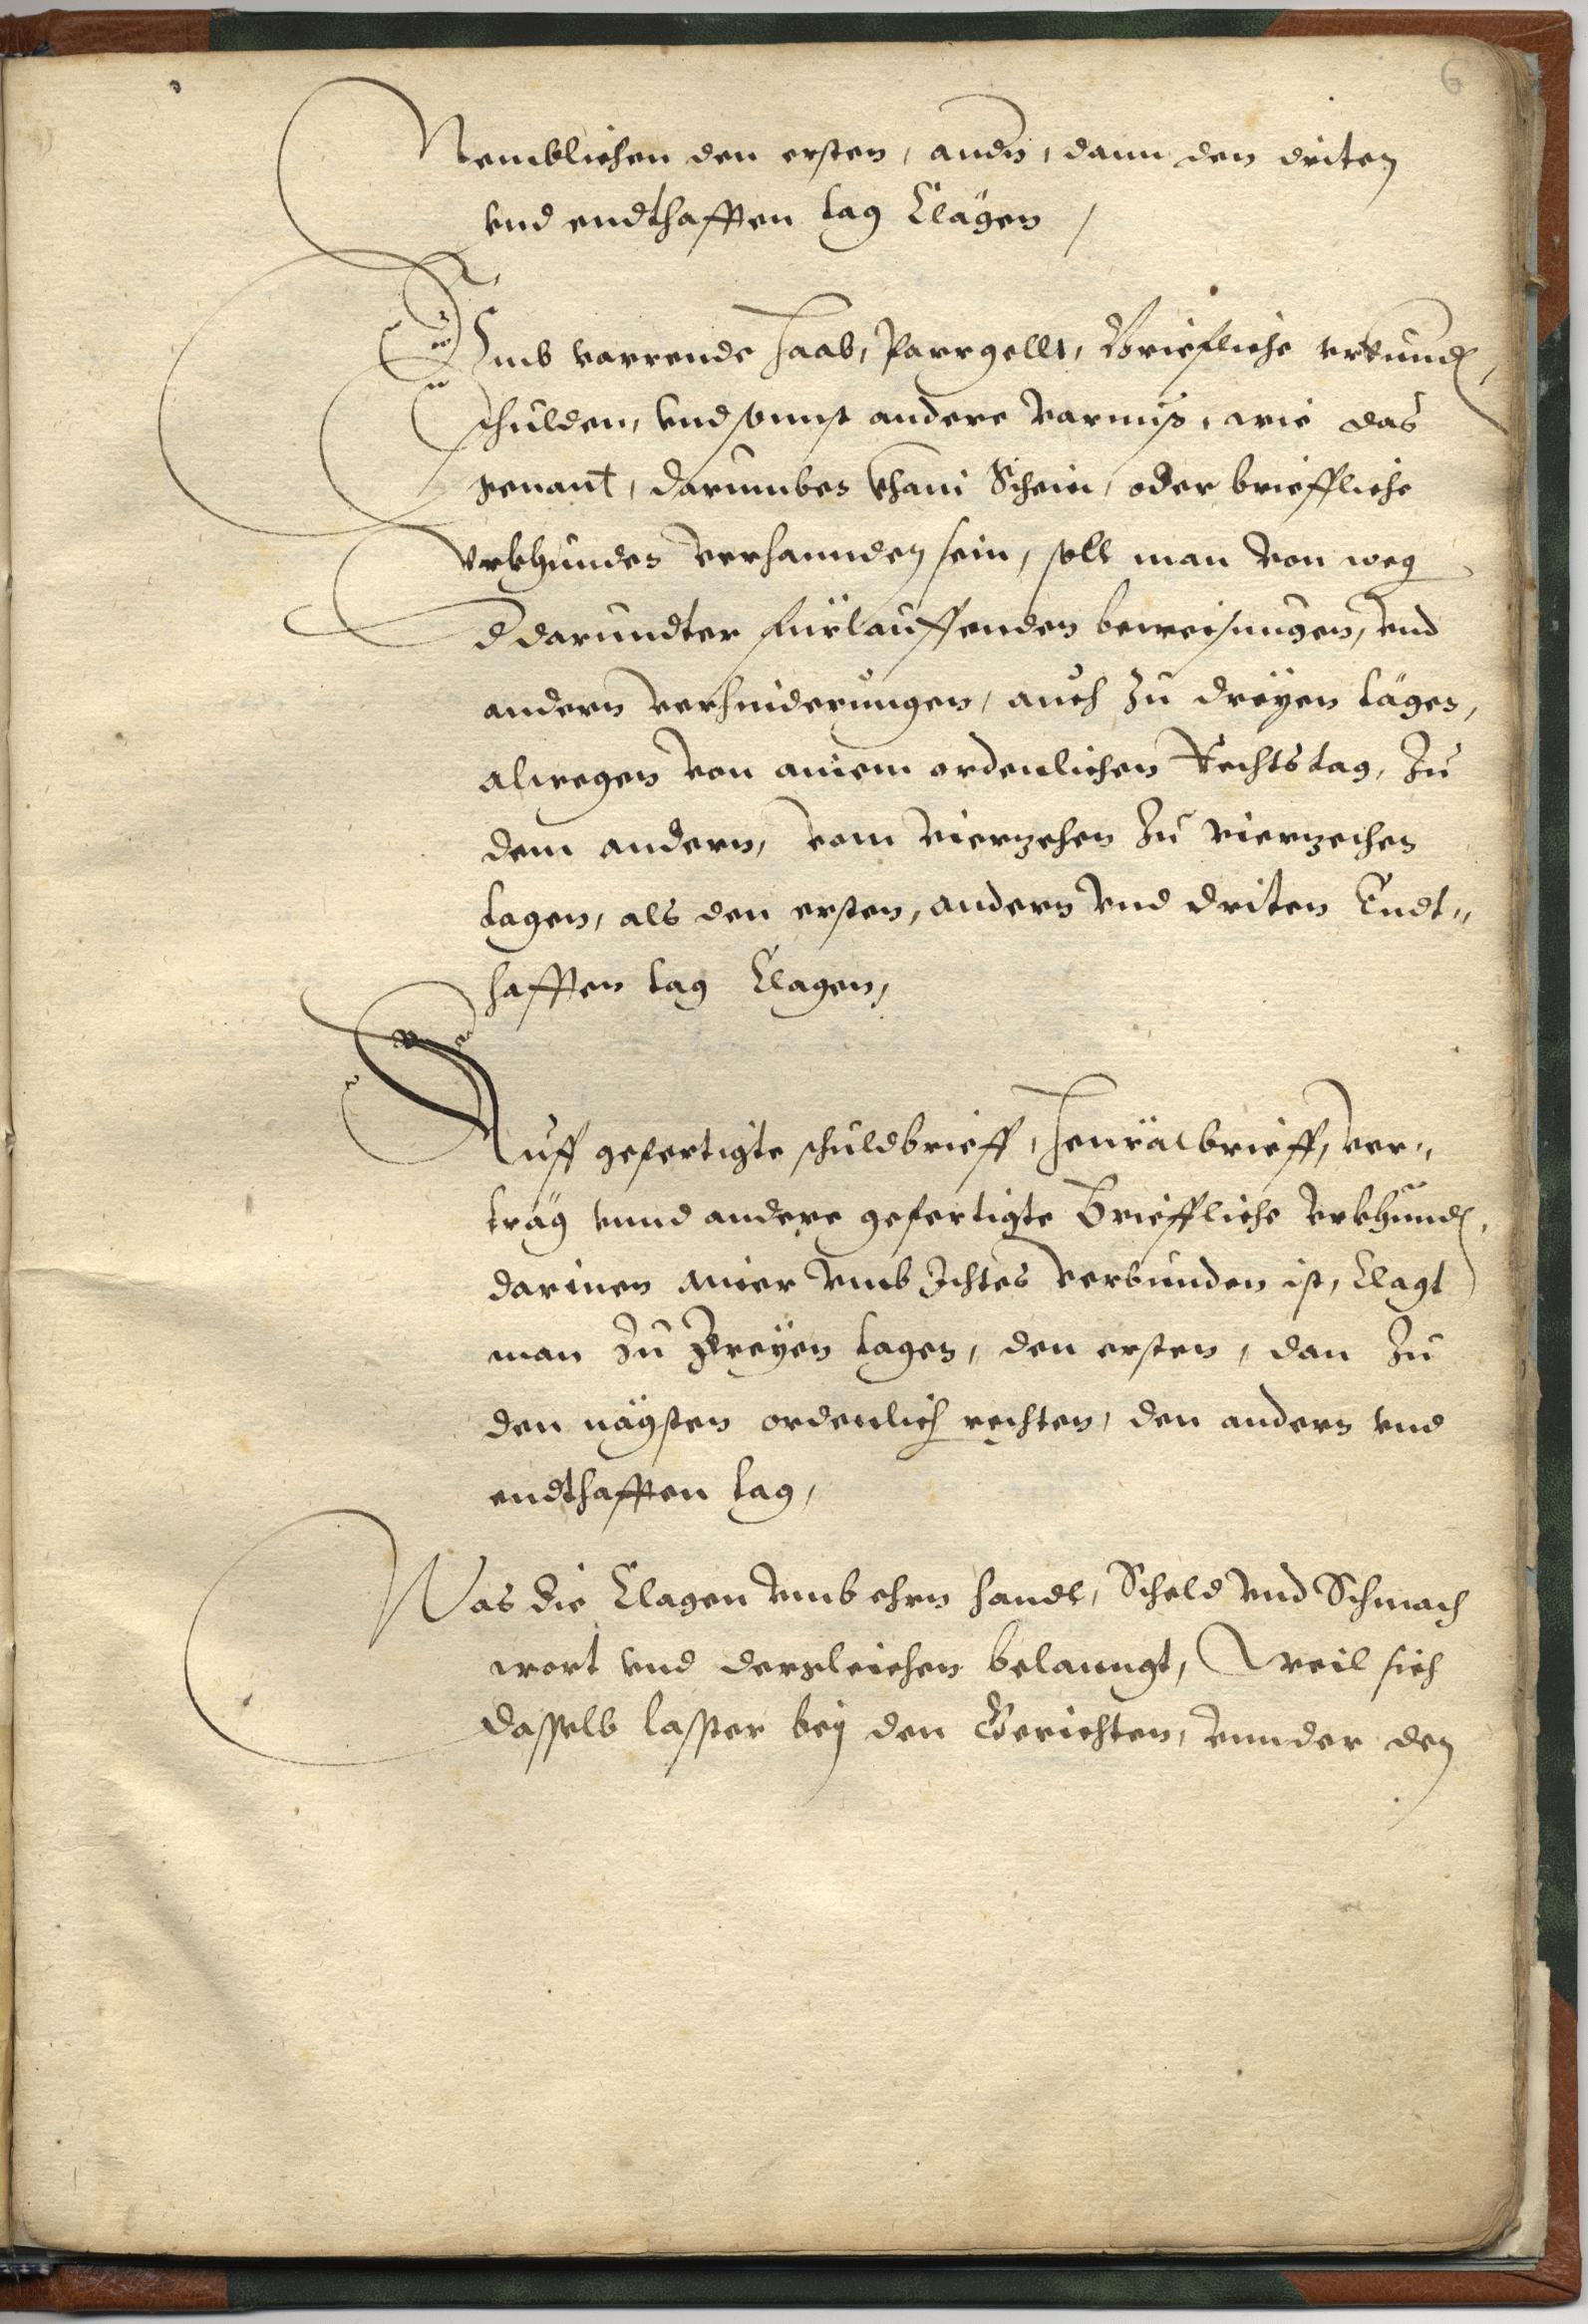 6
Nemblichen den ersten, andn, dann den driten
vnd endthafften tag Clagen /
Vmb varrende Haab, Parrgellt, Briefliche vrkund,
schulden, vnd sonnst andere varnuß, wie das
genant, darumben khain Schein, oder brieffliche
Vrkhunden verhannden sein, soll man von weg
d darundter fürlauffenden beweisungen, vnd
andern verhinderungen, auch zu dreyen tägen,
alwegen von ainem ordenlichen Rechtstag, Zu
dem andern, vom vierzehen zu vierzechen
tagen, als den ersten, andern vnd driten Endt„
hafften tag Clagen,
Auff gefertigte schuldbrieff, Heyratbrieff, ver„
träg vnnd andere gefertigte Brieffliche vrkhund,
darinen ainer vmb Ichtes verbunden ist, Clagt
man Zu Zweyen tagen, den ersten, dan Zu
den nägsten ordenlich rechten, den andern vnd
endthafften tag,
Was die Clagen vmb ehrn handl, Scheld vnd Schmach
wort vnd dergleichen belanngt, Weil sich
dasselb laster bey den Gerichten, vnnder den